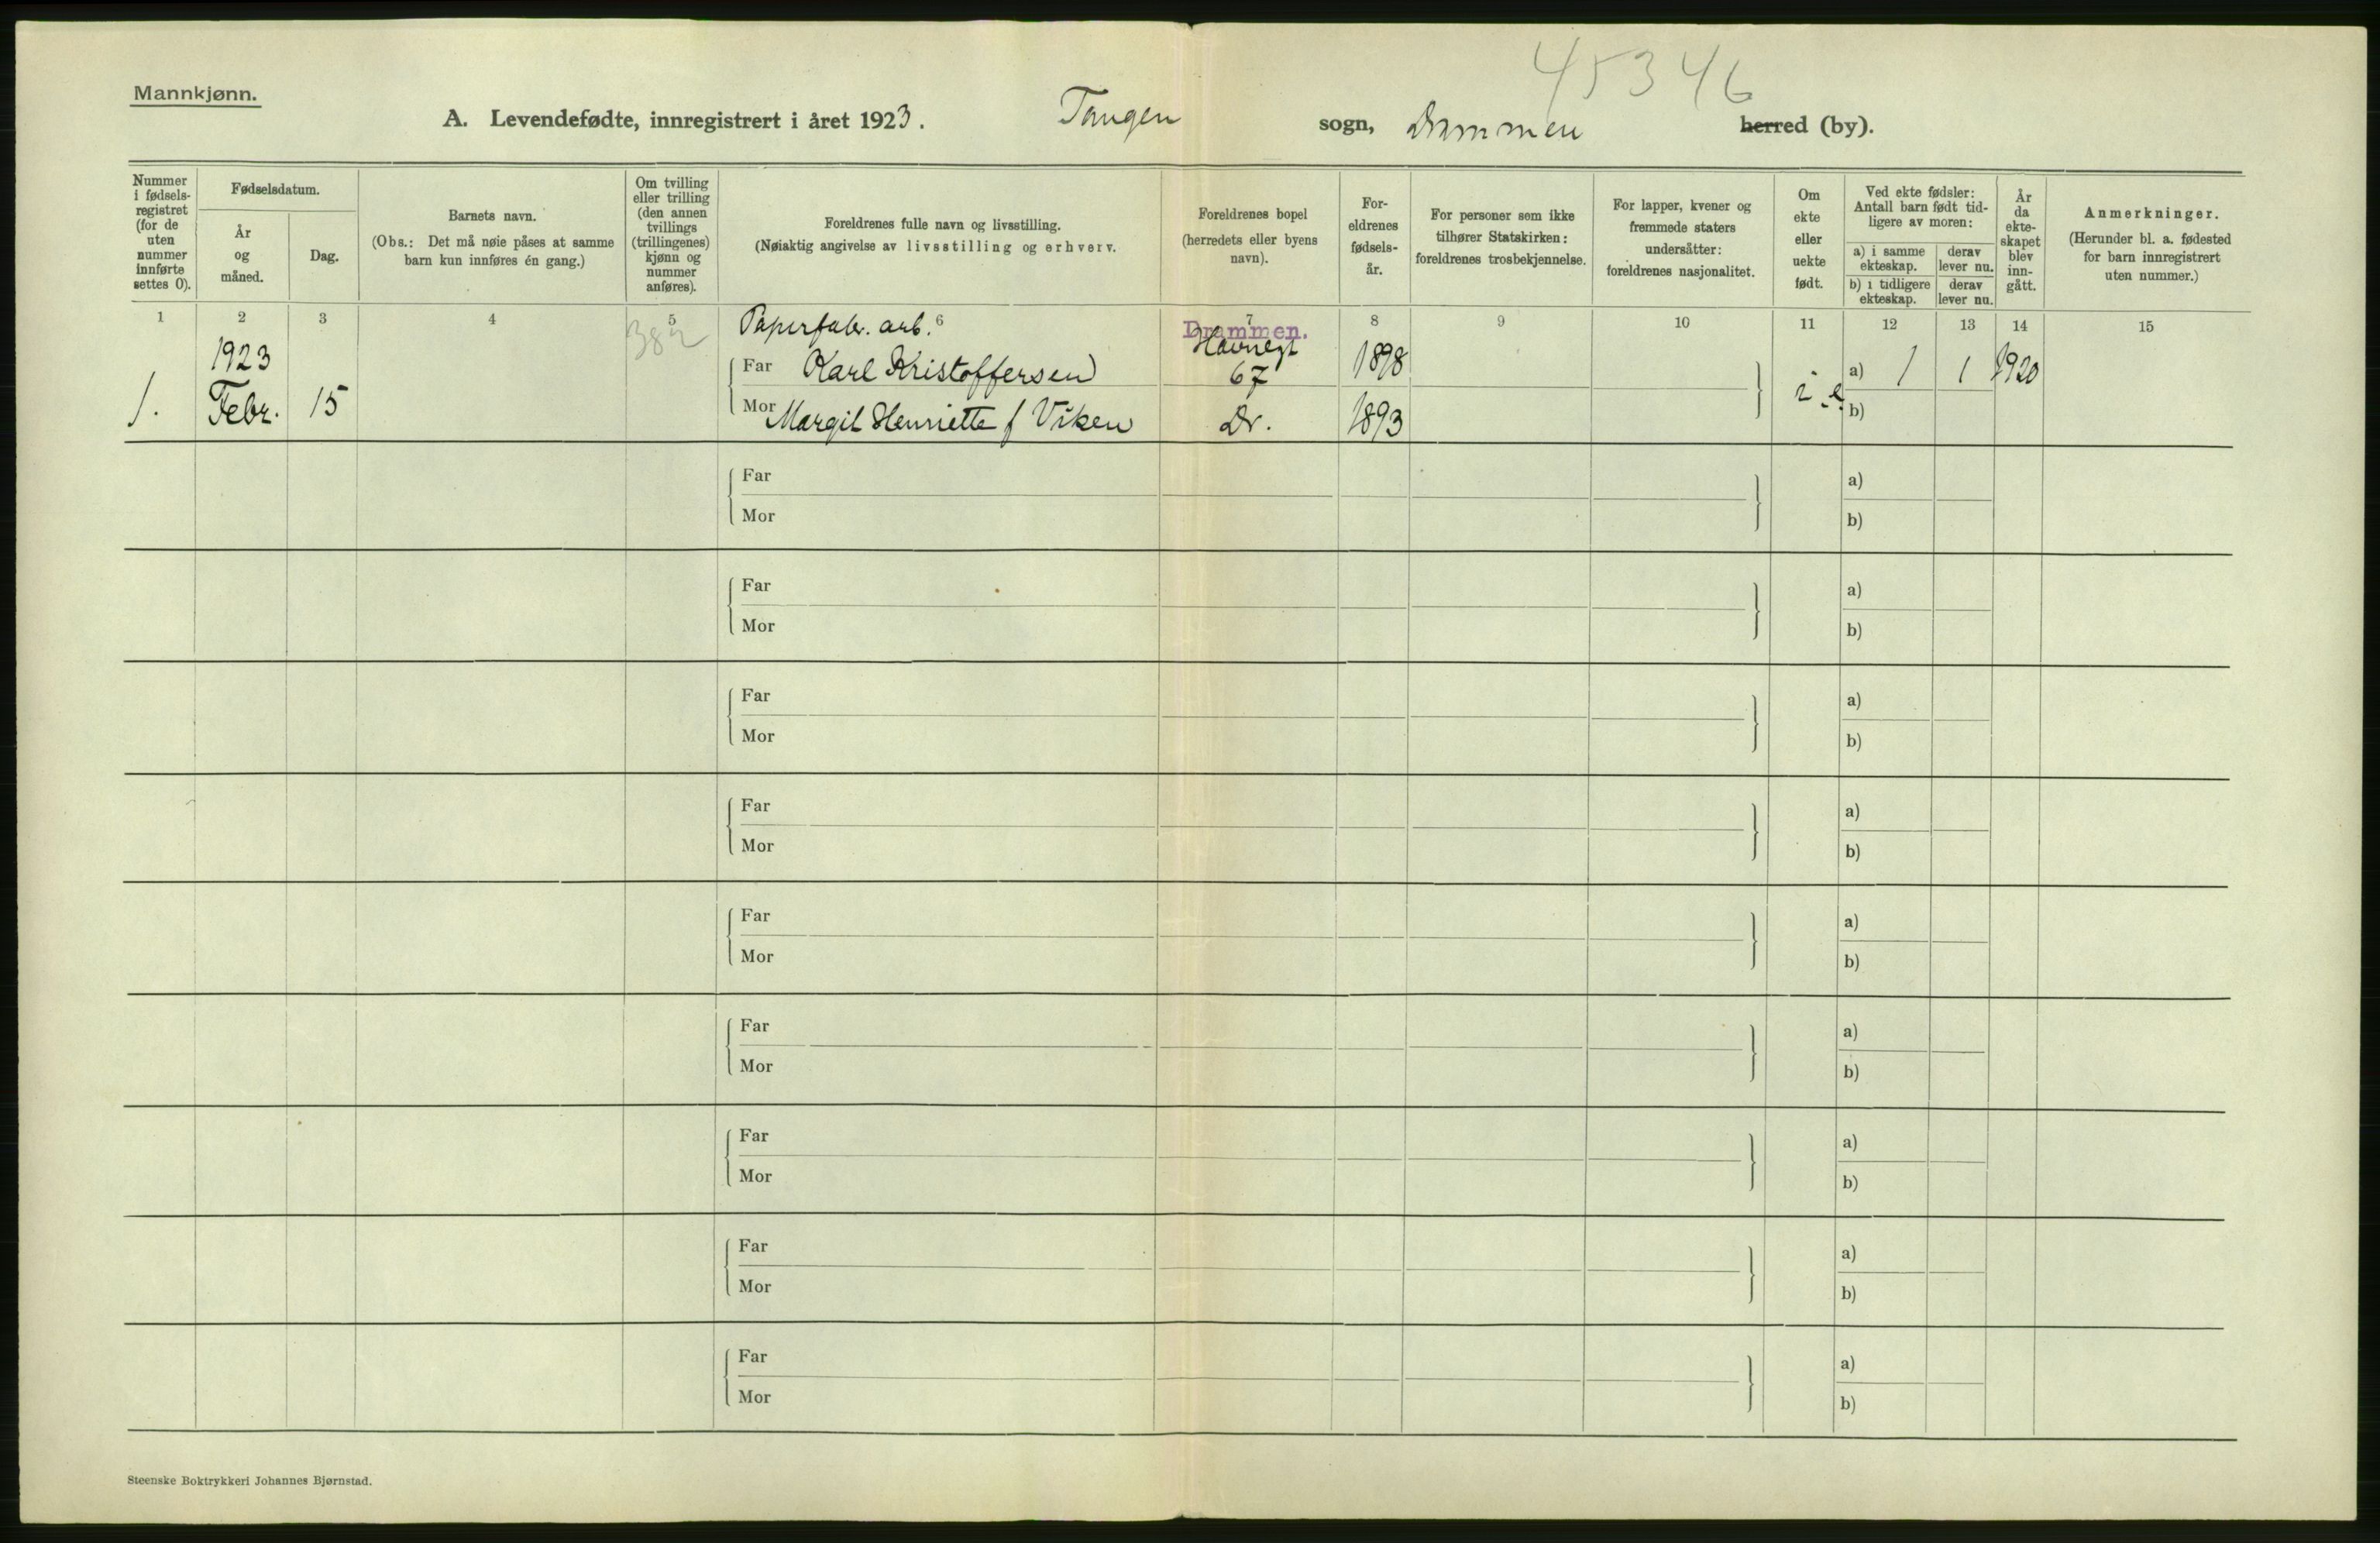 45346
Mannkjønn.
A. Levendefødte, innregistrert i året 1923. Tangen sogn, Drammen herred (by).
Nummer i fødsels-registret (for de uten nummer innførte settes 0).
Fødselsdatum.
År og måned.
Dag.
Barnets navn.
(Obs.: Det må nøie påses at samme barn kun innføres én gang.)
Om tvilling eller trilling (den annen tvillings (trillingenes) kjønn og nummer anføres).
Foreldrenes fulle navn og livsstilling.
(Nøiaktig angivelse av livsstilling og erhverv.
Foreldrenes bopel (herredets eller byens navn).
For-eldrenes fødsels-år.
For personer som ikke tilhører Statskirken: foreldrenes trosbekjennelse.
For lapper, kvener og fremmede staters undersåtter: foreldrenes nasjonalitet.
Om ekte eller uekte født.
Ved ekte fødsler: Antall barn født tid-ligere av moren:
a) i samme ekteskap.
derav lever nu.
b) i tidligere ekteskap.
derav lever nu.
År da ekte-skapet blev inn-gått.
Anmerkninger.
(Herunder bl. a. fødested for barn innregistrert uten nummer.)
1 2 3 4 5 6 7 8 9 10 11 12 13 14 15
382 Papirfabr. arb. Drammen.
1923 Far Karl Kristoffersen Havnegt 67 1898 a) 1 1 1920
1. Febr. 15 Mor Margit Henriette f Viken Dr. 1893 b)
Far a)
Mor b)
Far a)
Mor b)
Far a)
Mor b)
Far a)
Mor b)
Far a)
Mor b)
Far a)
Mor b)
Far a)
Mor b)
Far a)
Mor b)
Far a)
Mor b)
Steenske Boktrykkeri Johannes Bjørnstad.